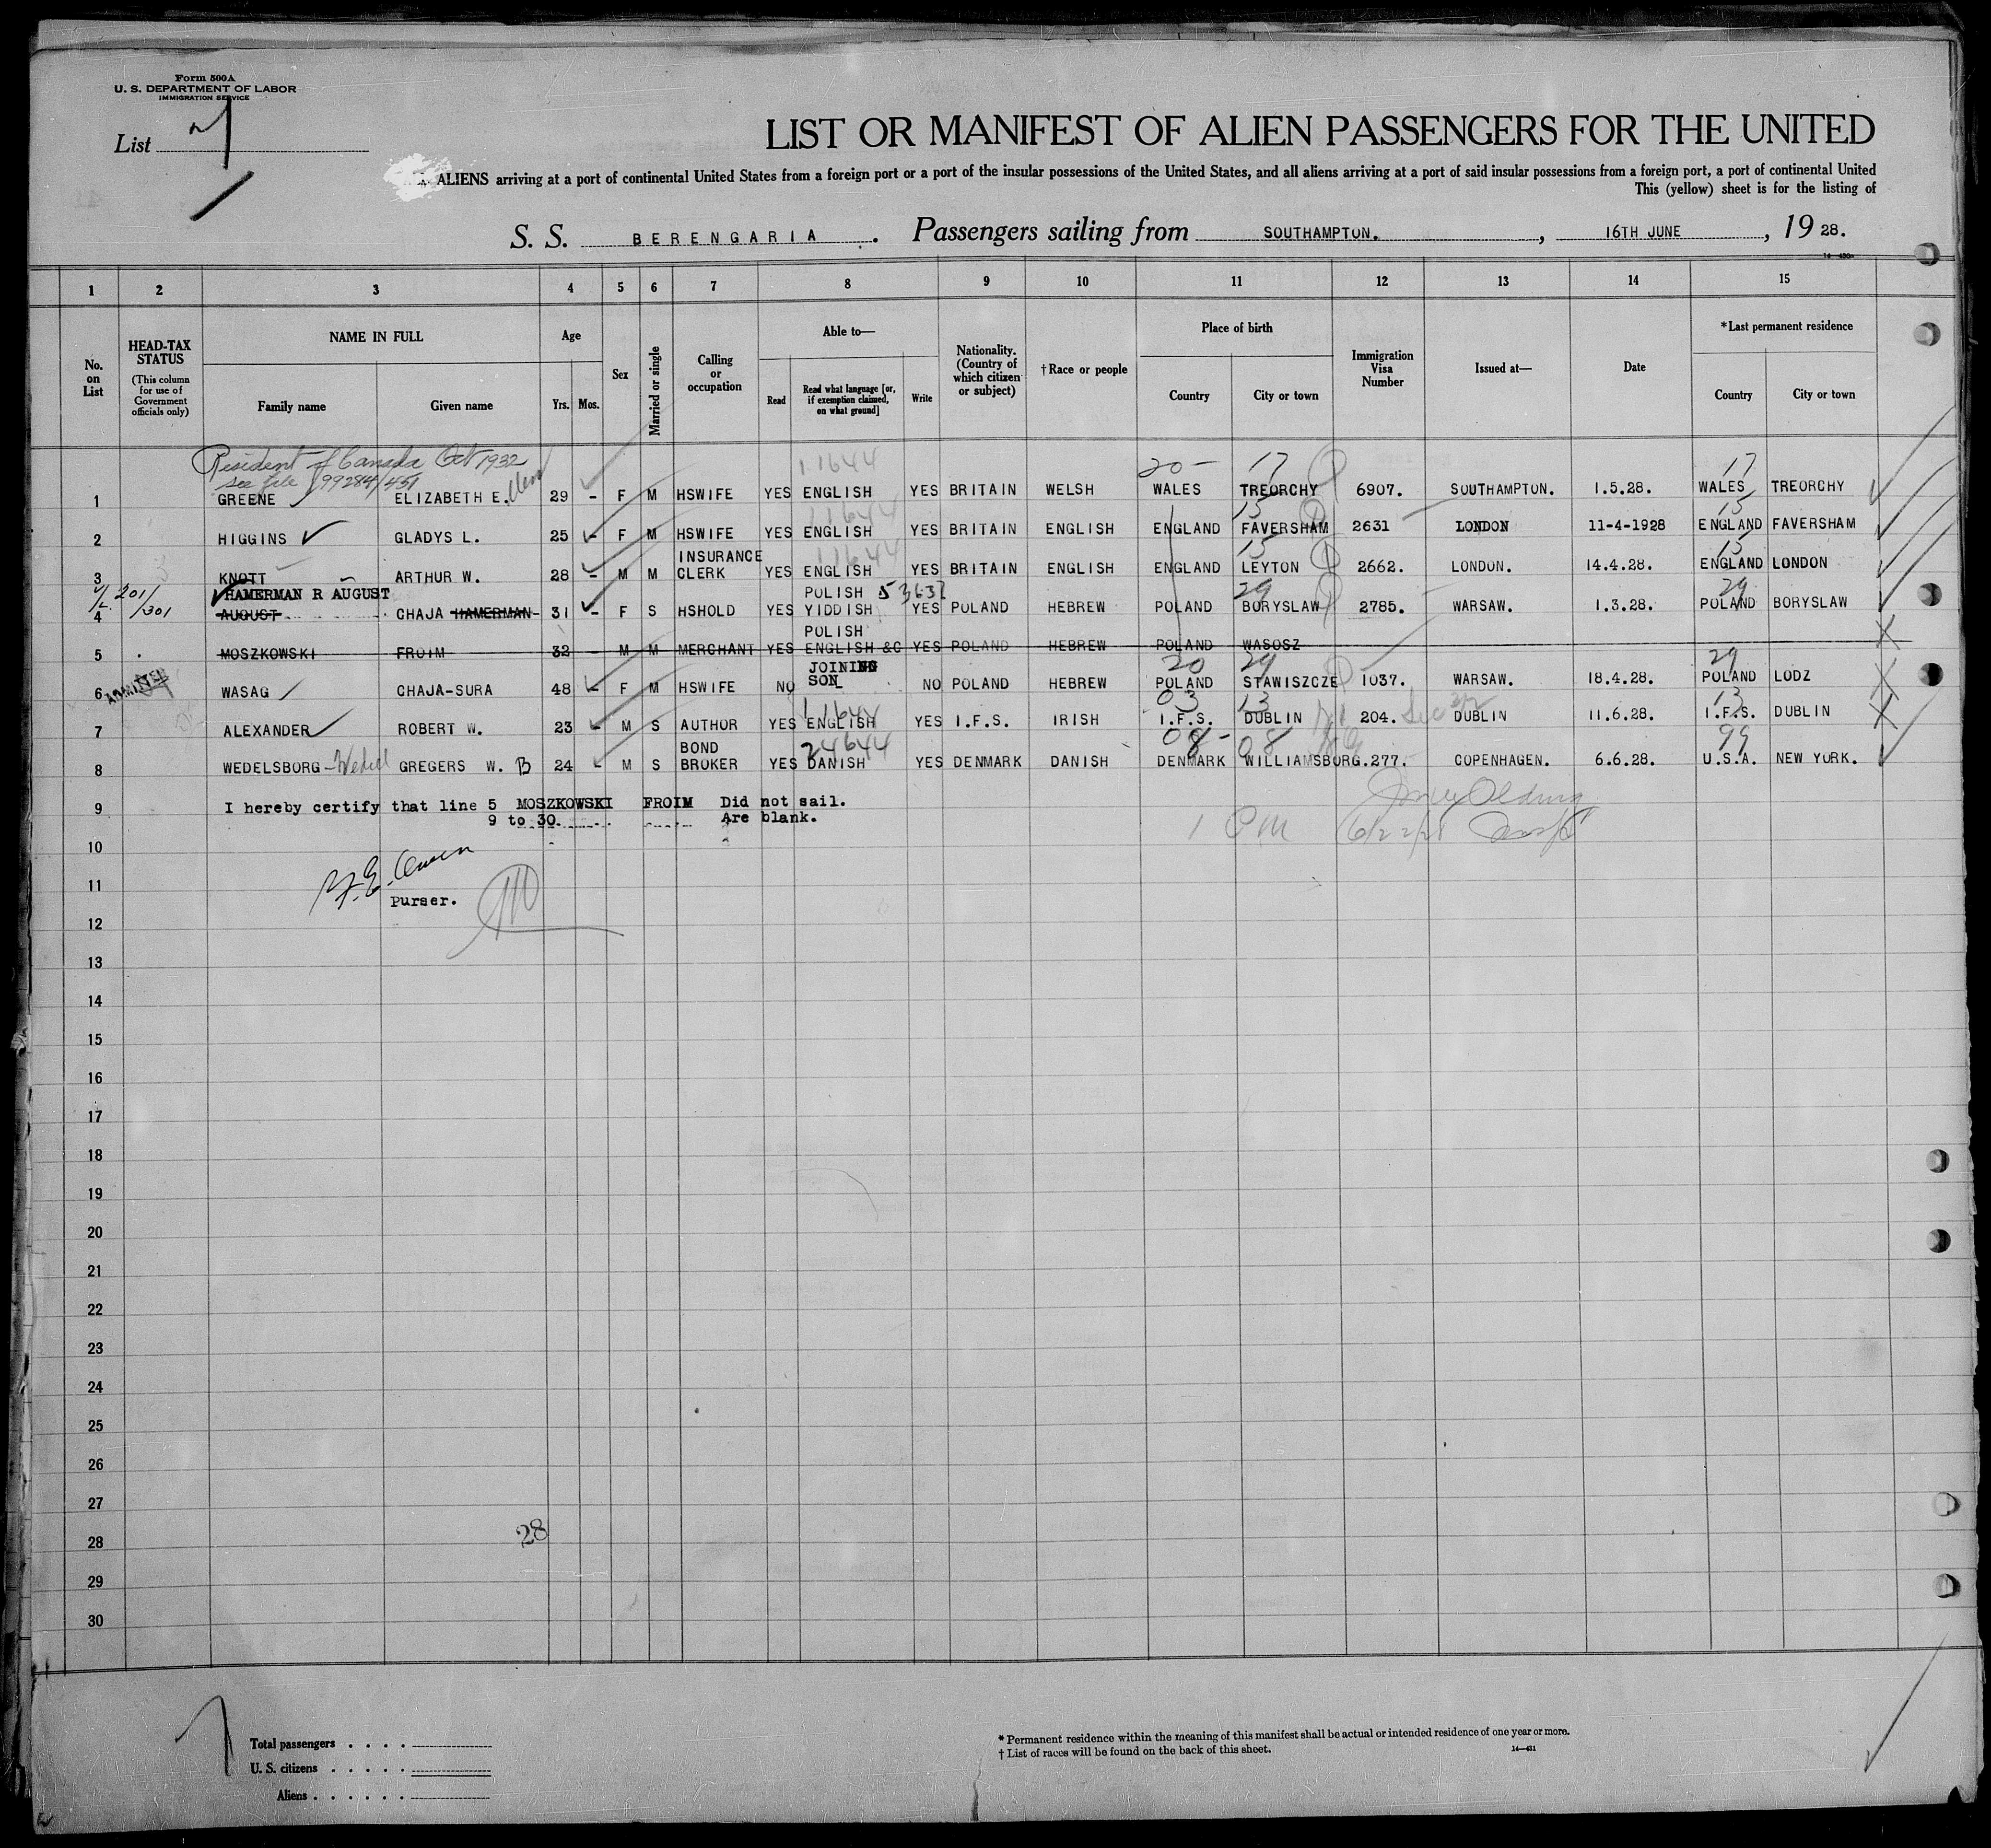 Form 500A
U. S. DEPARTMENT OF LABOR
IMMIGRATION SERVICE
List 7
LIST OR MANIFEST OF ALIEN PASSENGERS FOR THE UNITED
ALIENS arriving at a port of continental United States from a foreign port or a port of the insular possessions of the United States, and all aliens arriving at a port of said insular possessions from a foreign port, a port of continental United
This (yellow) sheet is for the listing of
S. S. BERENGARIA. Passengers sailing from SOUTHAMPTON. , 16TH JUNE , 19 28.
1 2 3 4 5 6 7 8 9 10 11 12 13 14 15
No. on List
HEAD-TAX STATUS (This column for use of Government officials only)
NAME IN FULL Family name Given name
Age Yrs. Mos.
Sex
Married or single
Calling or occupation
Able to— Read Read what language [or, if exemption claimed, on what ground] Write
Nationality. (Country of which citizen or subject)
†Race or people
Place of birth Country City or town
Immigration Visa Number
Issued at—
Date
*Last permanent residence Country City or town
Resident of Canada Oct 1932
see file 99284/451
11644 20- 17 17
1 GREENE ELIZABETH E. 29 - F M HSWIFE YES ENGLISH YES BRITAIN WELSH WALES TREORCHY 6907. SOUTHAMPTON. 1.5.28. WALES TREORCHY
11644 15 15
2 HIGGINS GLADYS L. 25 - F M HSWIFE YES ENGLISH YES BRITAIN ENGLISH ENGLAND FAVERSHAM 2631 LONDON 11-4-1928 ENGLAND FAVERSHAM
11644 15 15
3 KNOTT ARTHUR W. 28 - M M INSURANCE CLERK YES ENGLISH YES BRITAIN ENGLISH ENGLAND LEYTON 2662. LONDON. 14.4.28. ENGLAND LONDON
201/301 HAMERMAN R AUGUST 29 29
4 AUGUST CHAJA HAMERMAN 31 - F S HSHOLD YES POLISH YIDDISH YES POLAND HEBREW POLAND BORYSLAW 2785. WARSAW. 1.3.28. POLAND BORYSLAW
5 MOSZKOWSKI FROIM 32 - M M MERCHANT YES POLISH ENGLISH &C YES POLAND HEBREW POLAND WASOSZ
ADMITTED 20 29 29
6 WASAG CHAJA-SURA 48 - F M HSWIFE NO JOINING SON NO POLAND HEBREW POLAND STAWISZCZE 1037. WARSAW. 18.4.28. POLAND LODZ
11644 03 13 13
7 ALEXANDER ROBERT W. 23 - M S AUTHOR YES ENGLISH YES I.F.S. IRISH I.F.S. DUBLIN 204. DUBLIN 11.6.28. I.F.S. DUBLIN
24644 08- 08 99
8 WEDELSBORG-Wedell GREGERS W. B 24 - M S BOND BROKER YES DANISH YES DENMARK DANISH DENMARK WILLIAMSBORG.277. COPENHAGEN. 6.6.28. U.S.A. NEW YORK.
9 I hereby certify that line 5 MOSZKOWSKI FROIM Did not sail.
9 to 30 Are blank.
1 PM 6/22/28
10
11
purser.
12
13
14
15
16
17
18
19
20
21
22
23
24
25
26
27
28
28
29
30
Total passengers . . . .
U. S. citizens . . . . .
Aliens . . . . . .
* Permanent residence within the meaning of this manifest shall be actual or intended residence of one year or more.
† List of races will be found on the back of this sheet.
14—431